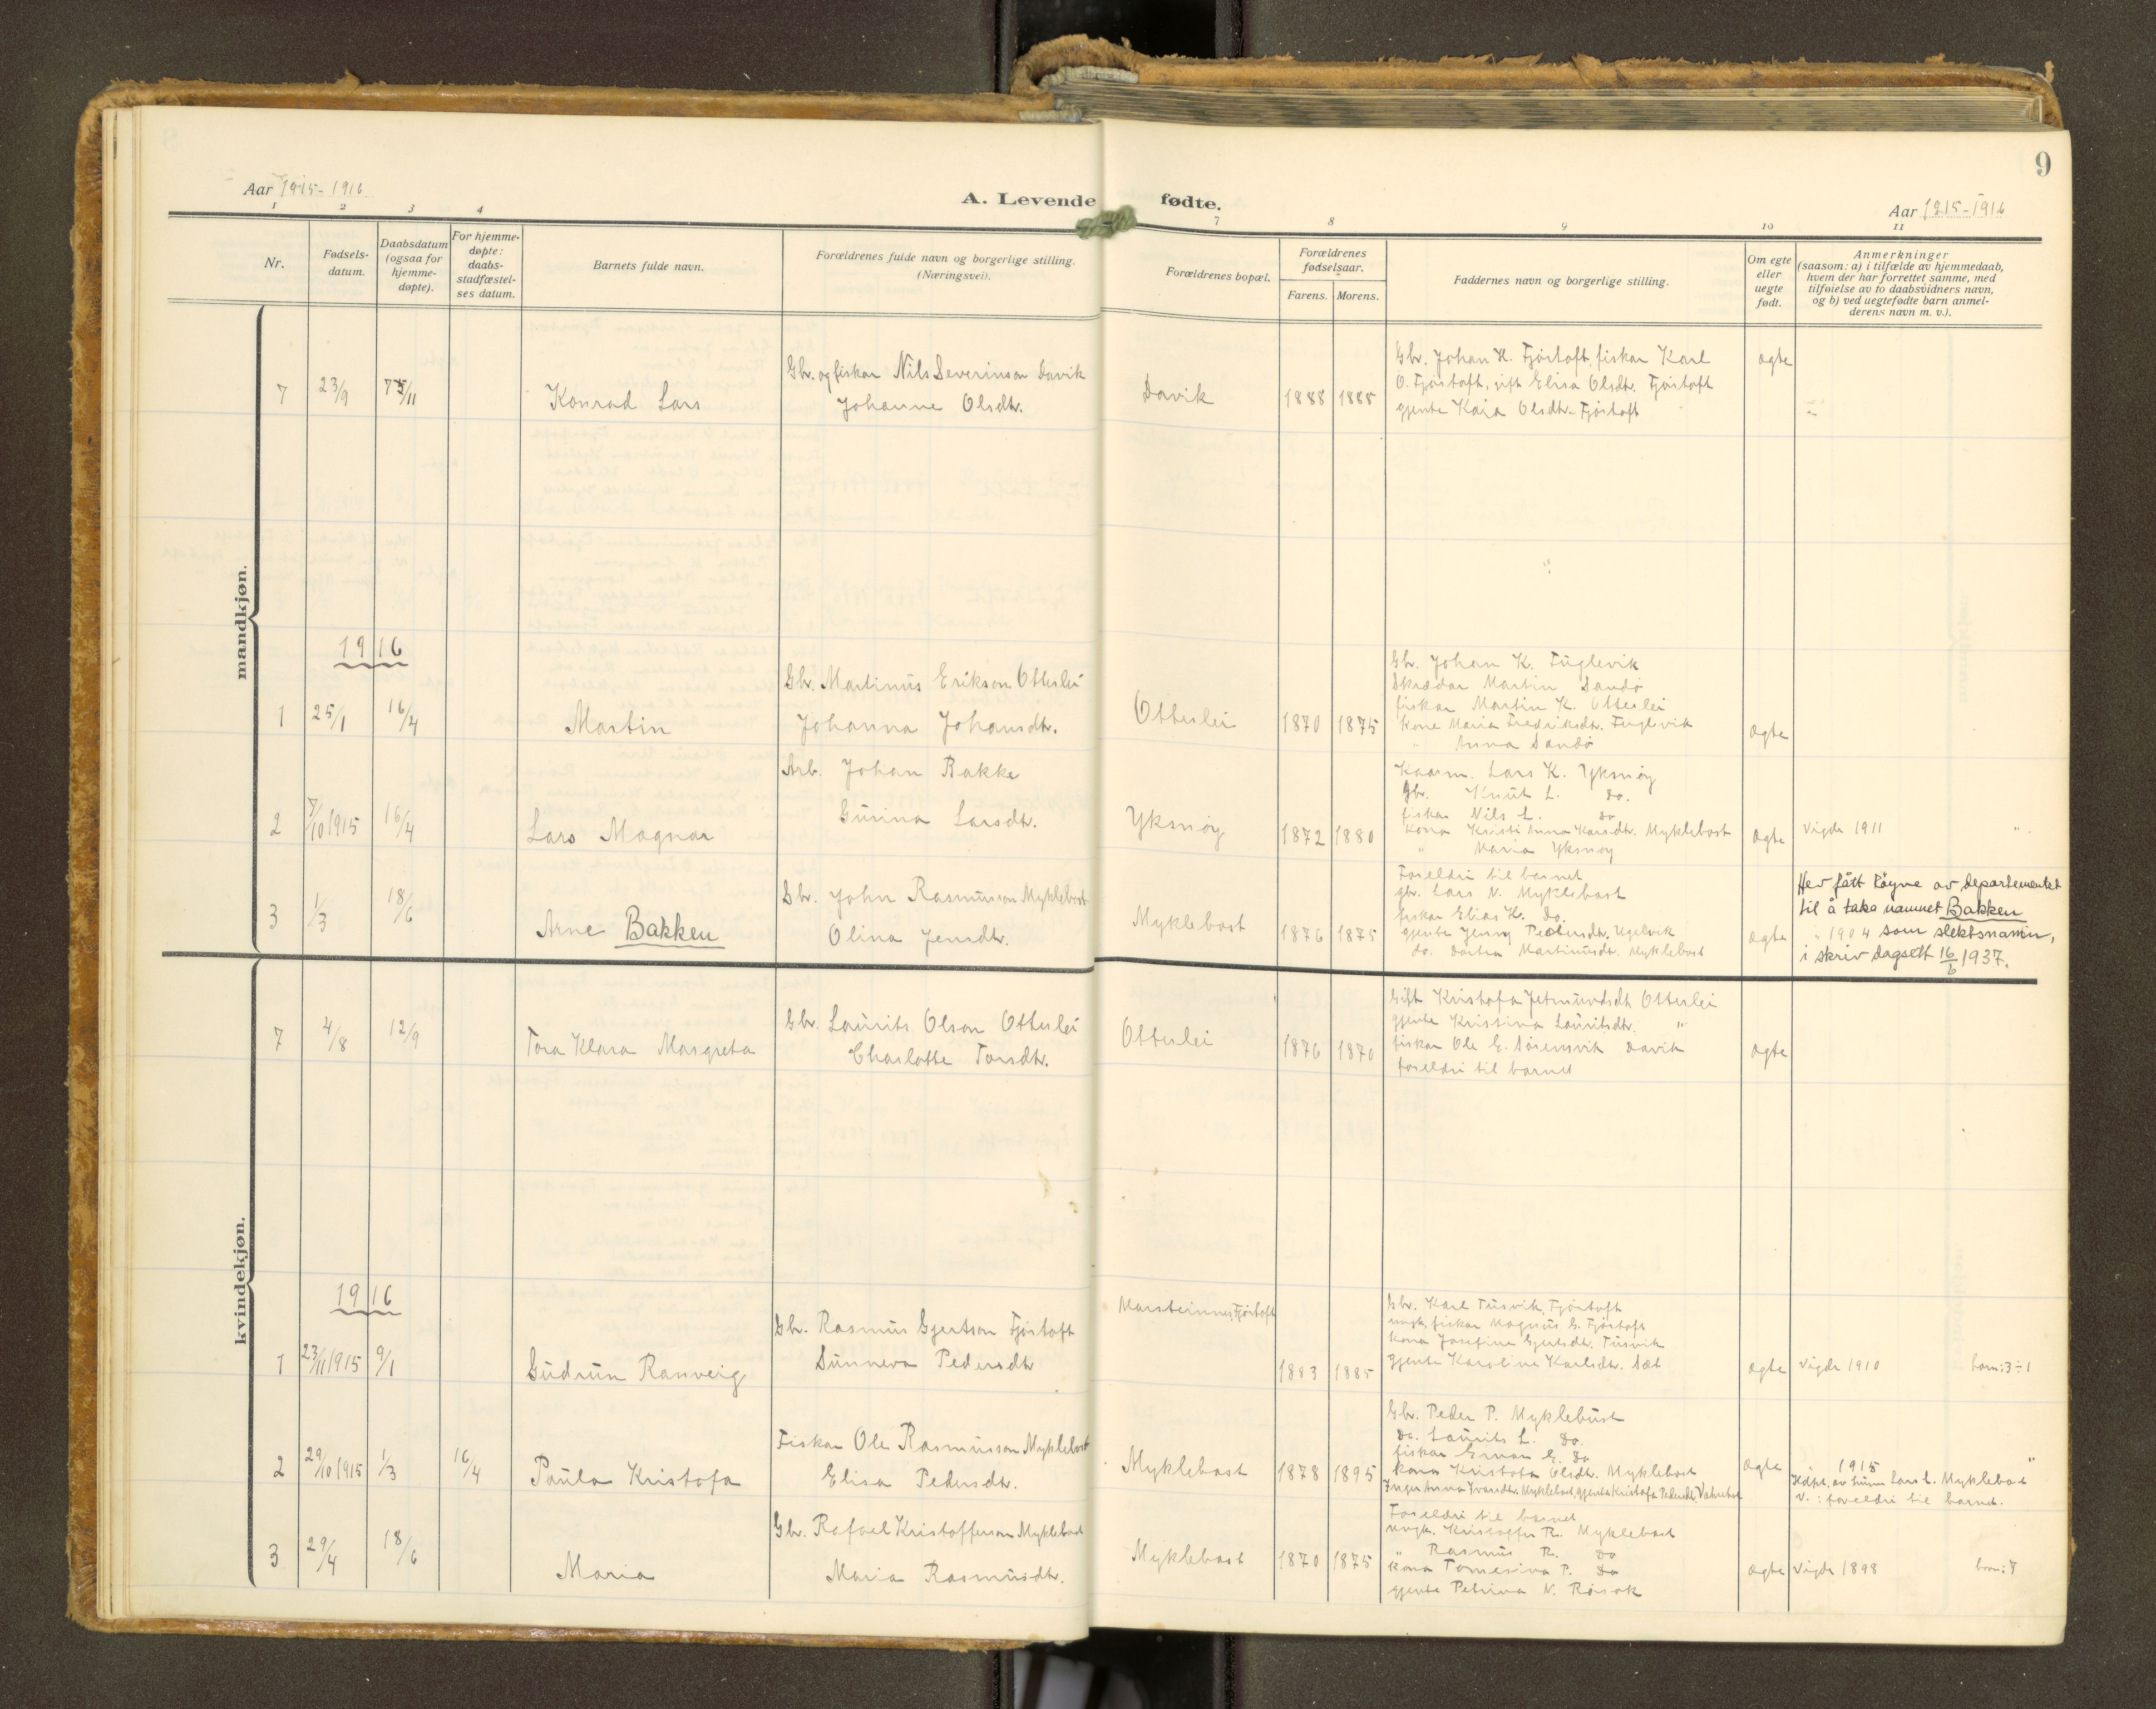 9
Aar 1915-1916
A. Levende fødte.
Aar 1915-1916
1 2 3 4 7 8 9 10 11
Nr.
Fødsels-
datum.
Daabsdatum
(ogsaa for
hjemme-
døpte).
For hjemme-
døpte:
daabs-
stadfæstel-
ses datum.
Barnets fulde navn.
Forældrenes fulde navn og borgerlige stilling.
(Næringsvei).
Forældrenes bopæl.
Forældrenes
fødselsaar.
Farens. Morens.
Faddernes navn og borgerlige stilling.
Om egte
eller
uegte
født.
Anmerkninger
(saasom: a) i tilfælde av hjemmedaab,
hvem der har forrettet samme, med
tilføielse av to daabsvidners navn,
og b) ved uegtefødte barn anmel-
derens navn m. v.).
mandkjøn.
7 23/9 7/11 Konrad Lars
Gbr. og fiskar Nils Severinson Davik
Johanne Olsdtr.
Davik 1888 1885
Gbr. Johan K. Fjörtoft, fiskar Karl
O. Fjörtoft, gift Elisa Olsdtr. Fjörtoft
gjente Kaja Olsdtr. Fjörtoft
ægte
1916
1 25/1 16/4 Martin
Gbr. Martinus Erikson Otterlei
Johanna Johansdtr.
Otterlei 1870 1875
Gbr. Johan K. Fuglevik
Skrædar Martin Sandö
fiskar Martin K. Otterlei
Kone Maria Fredriksdtr. Fuglvik
" Anna Sandö
ægte
2 7/10 1915 16/4 Lars Magnar
Arb. Johan Bakke
Gunna Larsdtr.
Yksnöy 1872 1880
Kaarm. Lars K. Yksnöy
Gbr. Knut L. do.
fiskar Nils L. do
Kona Kristi Anna Larsdtr. Myklebost
" Maria Yksnöy
ægte vigde 1911 "
3 1/3 18/6 Arne Bakken
Gbr. John Rasmusson Myklebost
Olina Jensdtr.
Myklebost 1876 1875
Foreldri til barnet
gbr. Lars N. Myklebost
fiskar Elias K. do.
gjente Jenny Pedersdtr. Ugelvik
do. Dortea Martinusdtr. Myklebost
ægte
Hev fått löyve av departementet
til å taka namnet Bakken
" 1904 som slektsnamn,
i skriv dagsett 16/6 1937.
kvindekjøn.
7 4/8 12/9 Tora Klara Margreta
Gbr. Laurits Olson Otterlei
Charlotte Torsdtr.
Otterlei 1876 1876
Gift Kristofa Jetmundsdtr Otterlei
gjente Kristina Lauritsdtr. "
fiskar Ole E. Sörensvik Davik
foreldri til barnet
ægte
1916
1 23/11 1915 9/1 Gudrun Ranveig
Gbr. Rasmus Gjertson Fjörtoft
Sunneva Pedersdtr
Marsteinnes, Fjörtoft 1883 1885
Gbr. Karl Tusvik, Fjörtoft
ungk. fiskar Magnus G. Fjörtoft
kona Josefine Gjertsdtr. Tusvik
gjente Karoline Karlsdtr. Sæt
ægte vigde 1910 born: 3 ÷ 1
2 29/10 1915 1/3 16/4 Paula Kristofa
Fiskar Ole Rasmusson Myklebost
Elisa Pedersdtr.
Myklebost 1878 1895
Gbr. Peder P. Myklebust
do. Laurits L. do.
fiskar Einar E. do
kona Kristofa Olsdtr. Myklebost
Inger Anna Ivarsdtr. Myklebost, gjente Kristofa Pedersdtr.
ægte " 1915 "
Hdpt. av Lars L. Myklebost
V.: foreldri til barnet.
3 29/4 18/6 Maria
Gbr. Rafael Kristofferson Myklebost
Maria Rasmusdtr.
Myklebost 1870 1875
Foreldri til barnet
ungk. Kristoffer R. Myklebost
" Rasmus R. do
kona Tomesina P. do
gjente Petrina N. Rörvik
ægte vigde 1898 born: 7